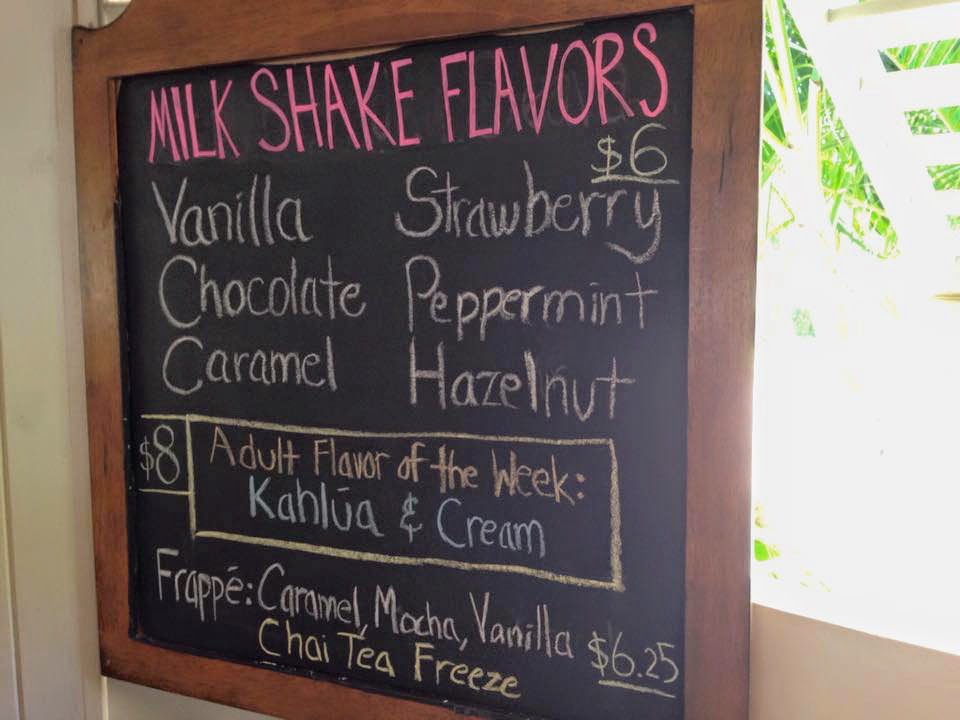 MILK SHAKE FLAVORS
$6
Vanilla Strawberry
Chocolate Peppermint
Caramel Hazelnut
$8 Adult Flavor of the Week:
Kahlúa & Cream
Frappé: Caramel, Mocha, Vanilla
Chai Tea Freeze $6.25